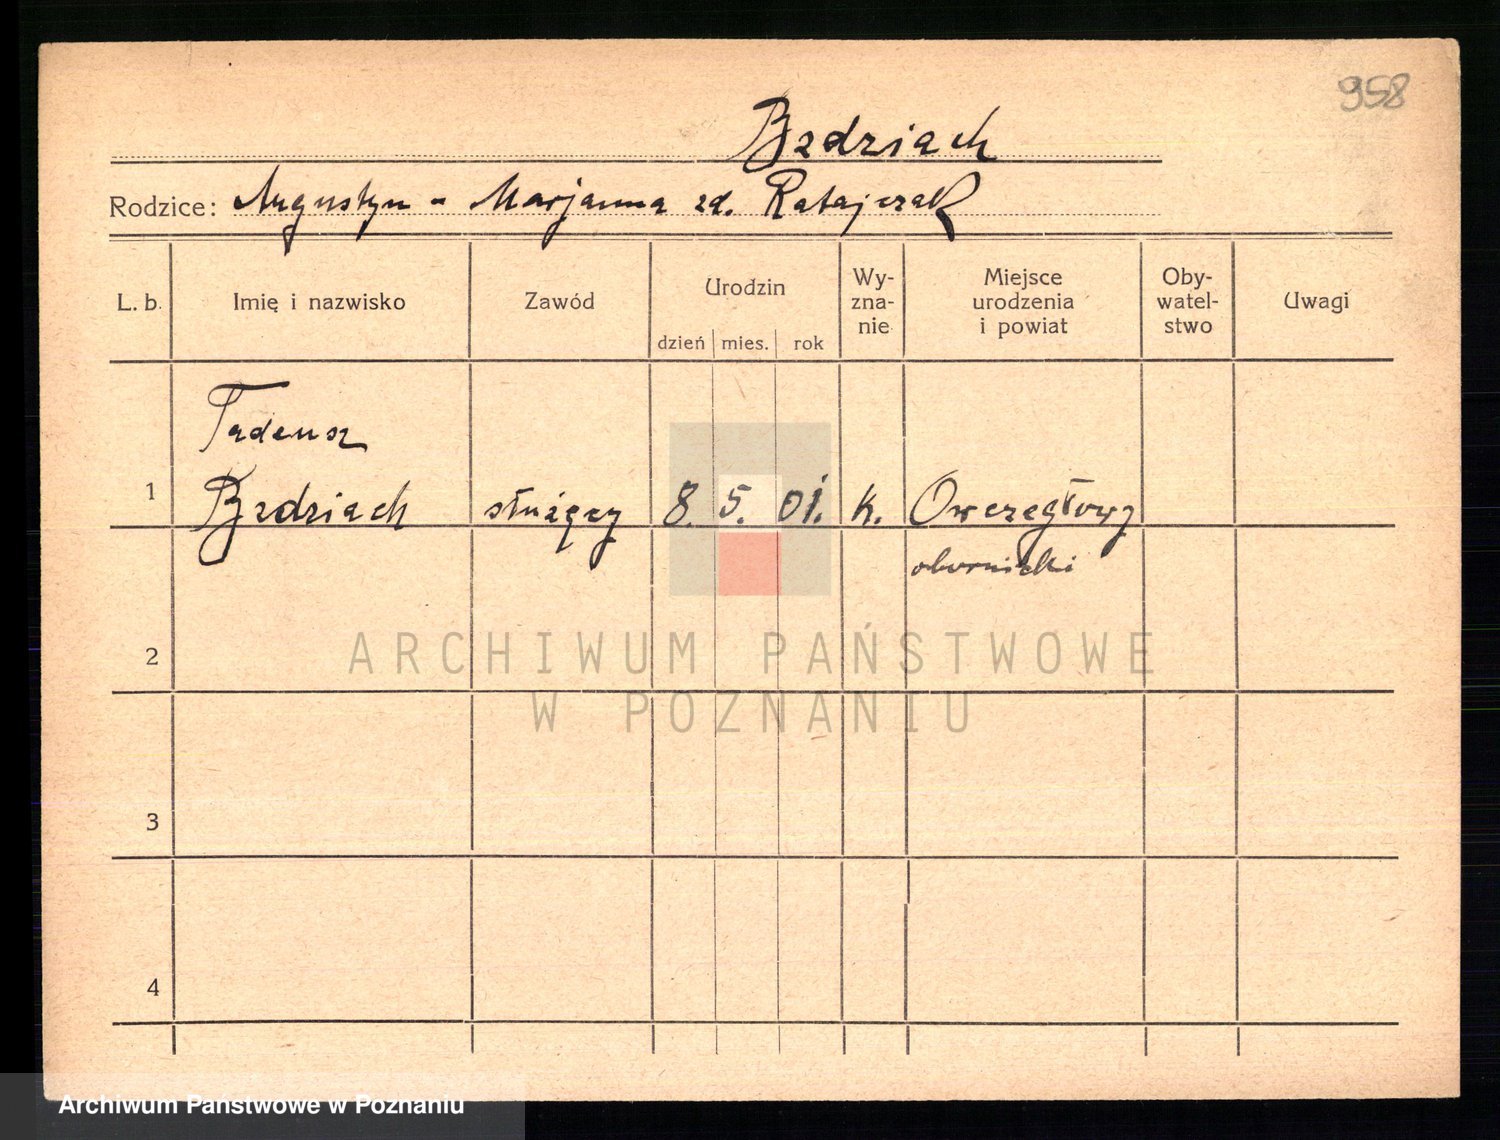 958
Bzdziach
Rodzice: Augustyn - Marjanna zd. Ratajczak
L. b. Imię i nazwisko Zawód Urodzin dzień mies. rok Wy-zna-nie Miejsce urodzenia i powiat Oby-watel-stwo Uwagi
Tadeusz
1 Bzdziach służący 8. 5. 01. k. Owczegłowy
obornicki
2
ARCHIWUM PAŃSTWOWE
W POZNANIU
3
4
Archiwum Państwowe w Poznaniu